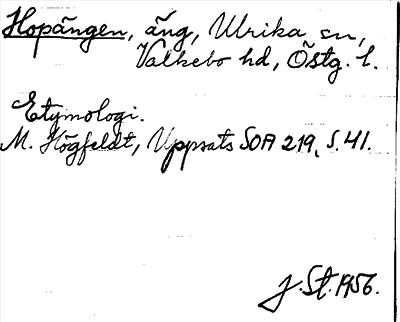 Hopängen, äng, Ulrika sn,
Valkebo hd, Östg. l.
Etymologi.
M. Högfeldt, Uppsats SOA 219, s. 41.
J. St. 1956.